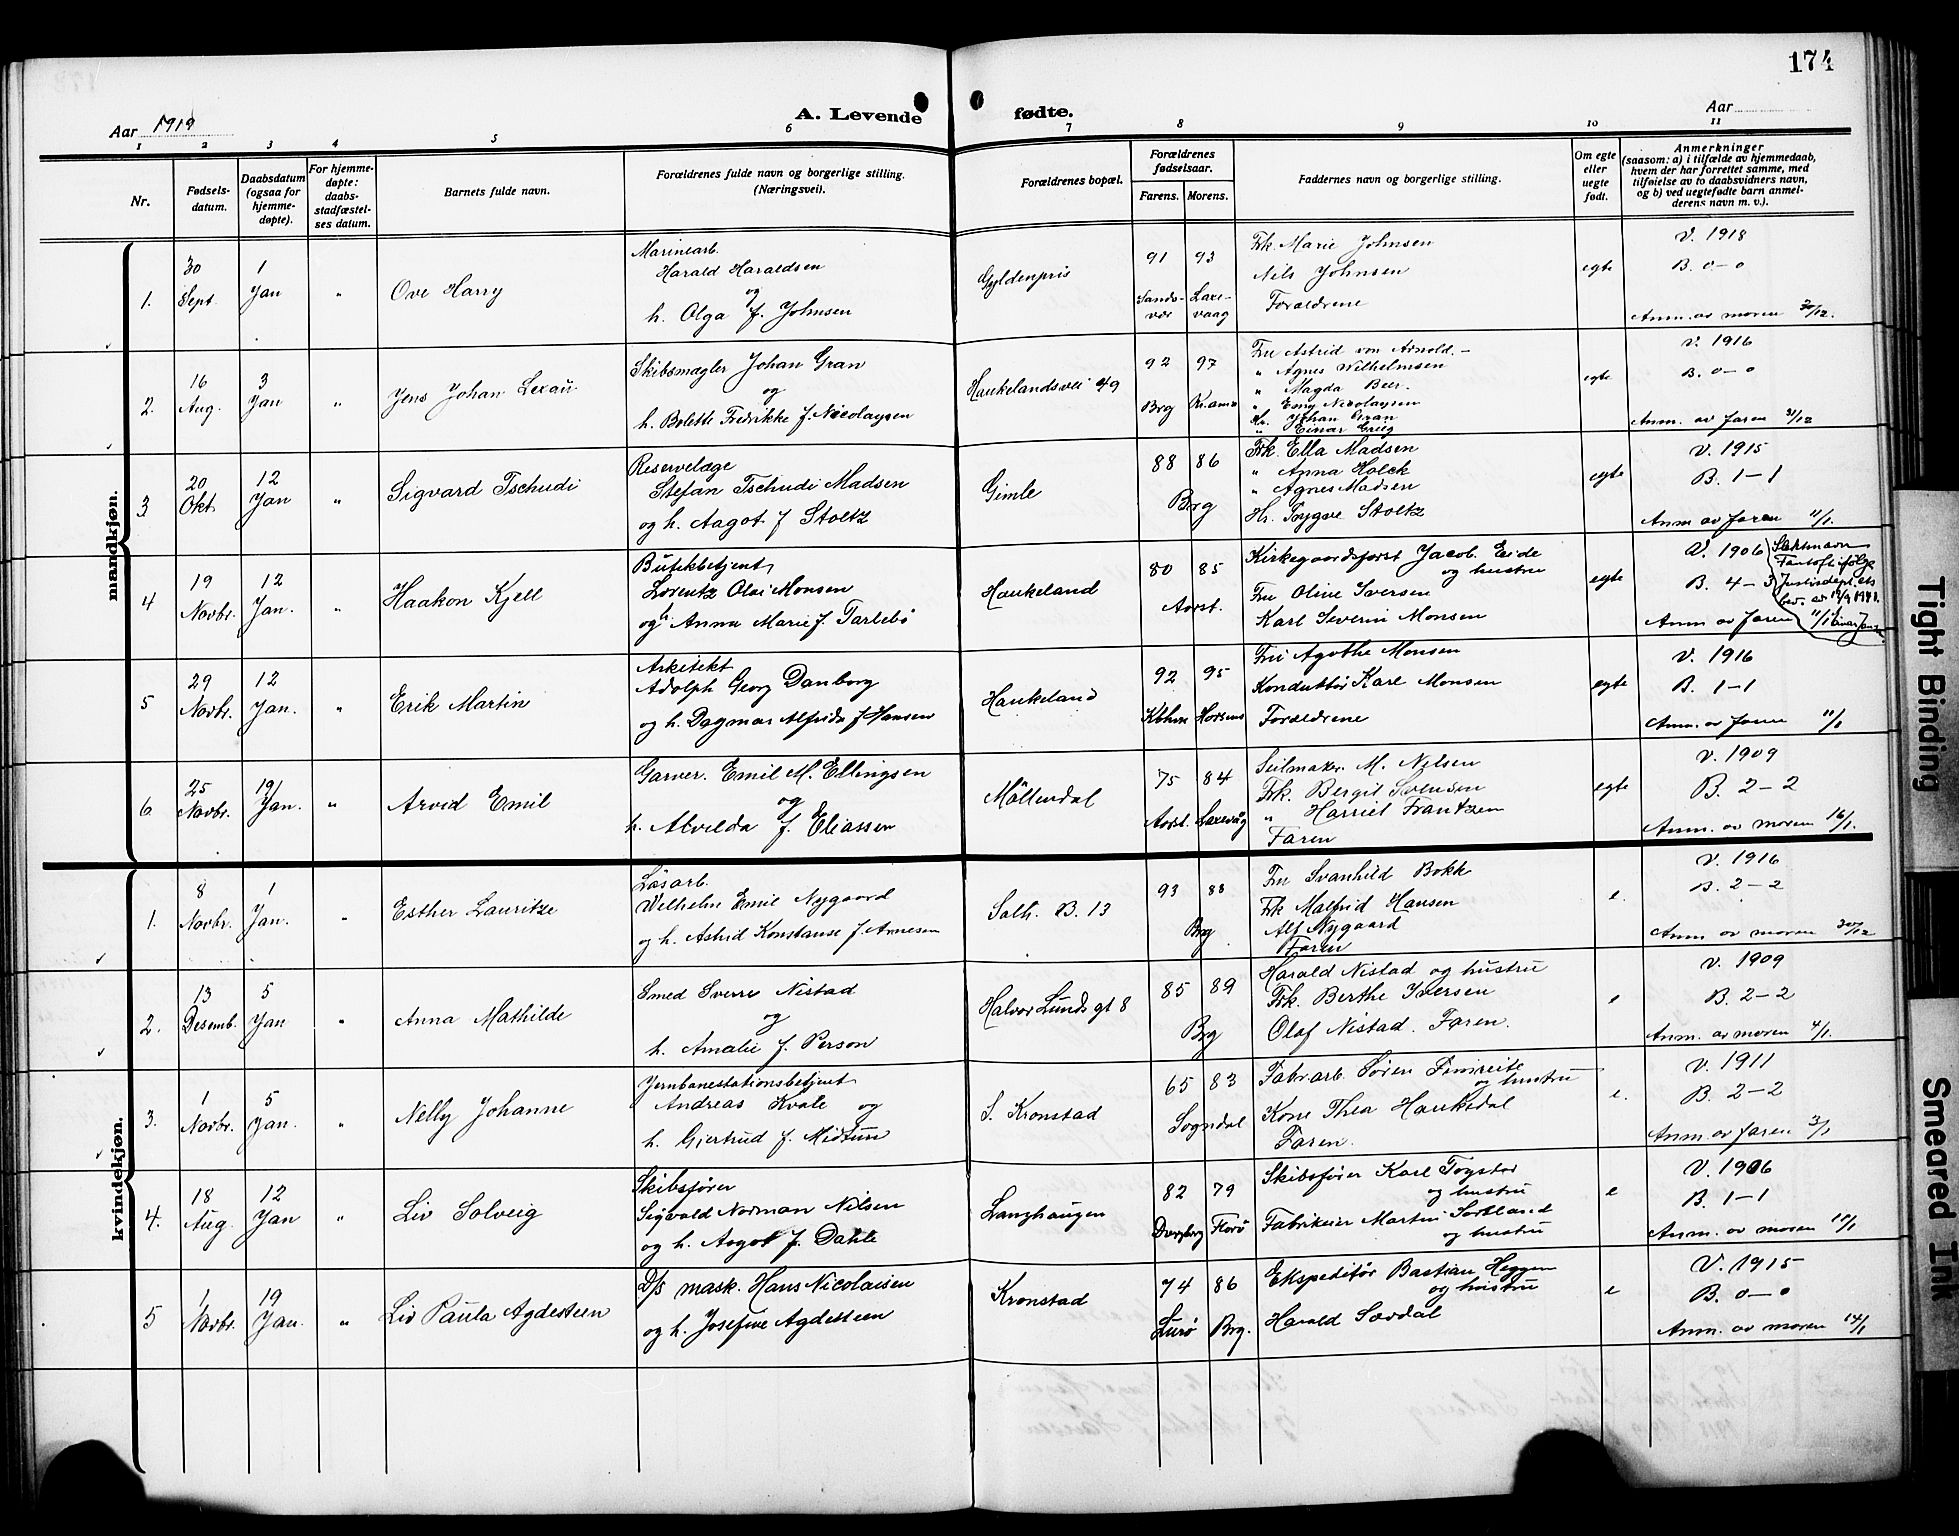 174
Aar 1919
A. Levende fødte.
Aar
1 2 3 4 5 6 7 8 9 10 11
Nr.
Fødsels-
datum.
Daabsdatum
(ogsaa for
hjemme-
døpte).
For hjemme-
døpte:
daabs-
stadfæstel-
ses datum.
Barnets fulde navn.
Forældrenes fulde navn og borgerlige stilling.
(Næringsvei).
Forældrenes bopæl.
Forældrenes
fødselsaar.
Farens. Morens.
Faddernes navn og borgerlige stilling.
Om egte
eller
uegte
født.
Anmerkninger
(saasom: a) i tilfælde av hjemmedaab,
hvem der har forrettet samme, med
tilføielse av to daabsvidners navn,
og b) ved uegtefødte barn anmel-
derens navn m. v.).
mandkjøn.
1.
30
Sept.
1
Jan
"
Ove Harry
Marinearb.
Harald Haraldsen
og
h. Olga f. Johnsen
Gyldenpris
91 93
Sands-
vær
Laxe-
vaag
Frk. Marie Johnsen
Nils Johnsen
Forældrene
egte
V. 1918
B. 0-0
Anm. av moren 30/12.
2.
16
Aug.
3
Jan
"
Jens Johan Lexau
Skibsmægler Johan Gran
og
h. Bolette Fredrikke f. Nicolaysen
Haukelandsvei 49
92 97
Brg Kr.amt
Fru Astrid von Arnold.-
" Agnes Wilhelmsen
" Magda Beer.
" Emy Nicolaysen
Hr. Johan Gran
" Einar Grieg
egte
V. 1916
B. 0-0
Anm. av faren 31/12
3
20
Okt
12
Jan
"
Sigvard Tschudi
Reservelæge
Stefan Tschudi Madsen
og h. Aagot f Stoltz
Gimle
88 86
Brg
Frk. Ella Madsen
" Anna Holck
" Agnes Madsen
Hr. Trygve Stoltz
egte
V. 1915
B. 1-1
Anm av faren 11/1.
4
19
Novbr.
12
Jan.
"
Haakon Kjell
Butikbetjent
Lorentz Olai Monsen
og h Anna Marie f. Tarlebø
Haukeland
80 85
Aarst.
Kirkegaardsforst Jacob. Eide
og hustru
Fru Oline Iversen
Karl Severin Monsen
egte
V. 1906
B. 4-3
Anm av faren 11/1
Slektsnavn
Fantoft ifølge
Justisdept.ets
bev. av 19/9 1941.
5
29
Novbr.
12
Jan.
"
Erik Martin
Arkitekt
Adolph Georg Danborg
og h. Dagmar Alfrida f Hansen
Haukeland
92 95
Kbhvn Horsens
Fru Agothe Monsen
Konduktør Karl Monsen
Forældrene
egte
V. 1916
B. 1-1
Anm. av faren 11/1
6
25
Novbr.
19/
Jan.
"
Arvid Emil
Garver. Emil M. Ellingsen
og
h. Alvilda f. Eliassen
Möllendal
75 84
Aarst. Laxevåg
Seilmaker M. Nilsen
Frk. Bergit Svensen
" Harriet Frantzen
Faren
egte
V. 1909
B. 2-2
Anm. av moren 16/1.
kvindekjøn.
1.
8
Novbr.
1
Jan.
"
Esther Lauritze
Løsarb.
Vilhelm Emil Nygaard
og h. Astrid Konstanse f. Arnesen
Salh. B. 13
93 88
Brg
Fru Svanhild Bokk
Frk Malfrid Hansen
Alf Nygaard
Faren
e.
V. 1916
B. 2-2
Anm av moren 30/12
2.
13
Desemb.
5
Jan
"
Anna Mathilde
Smed Sverre Nistad
og
h. Amalie f. Person
Halvor Lunds gt 8
85 89
Brg
Harald Nistad og hustru
Frk. Berthe Iversen
Olaf Nistad. Faren.
e
V. 1909
B. 2-2
Anm. av moren 4/1.
3.
1
Novbr.
5
Jan.
"
Nelly Johanne
Jernbanestationsbetjent
Andreas Kvale og
h. Gjertrud f. Midtun
S. Kronstad
65 83
Sogndal
Fabrarb. Søren Fimreite
og hustru
Kone Thea Haukedal
Faren.
e.
V. 1911
B. 2-2
Anm. av faren 3/1
4.
18
Aug.
12
Jan
"
Liv Solveig
Skibsfører
Sigvald Norman Nilsen
og h. Aagot f. Dahle
Langhaugen
82 79
Florø
Skibsfører Karl
og hustru
Fabrikeier Martin Sørbland
og hustru
e
V. 1906
B. 1-1
Anm. av moren 10/1
5
1
Novbr.
19
Jan.
"
Liv Paula Agdesteen
D/s mask. Hans Nicolaisen
og h. Josefine Agdesteen
Kronstad
74 86
Lurø Brg.
Ekspeditør Bastian Heggen
og hustru
Harald Sørdal
e
V. 1915
B. 0-0
Anm. av moren 14/1
Tight Binding
Smeared Ink